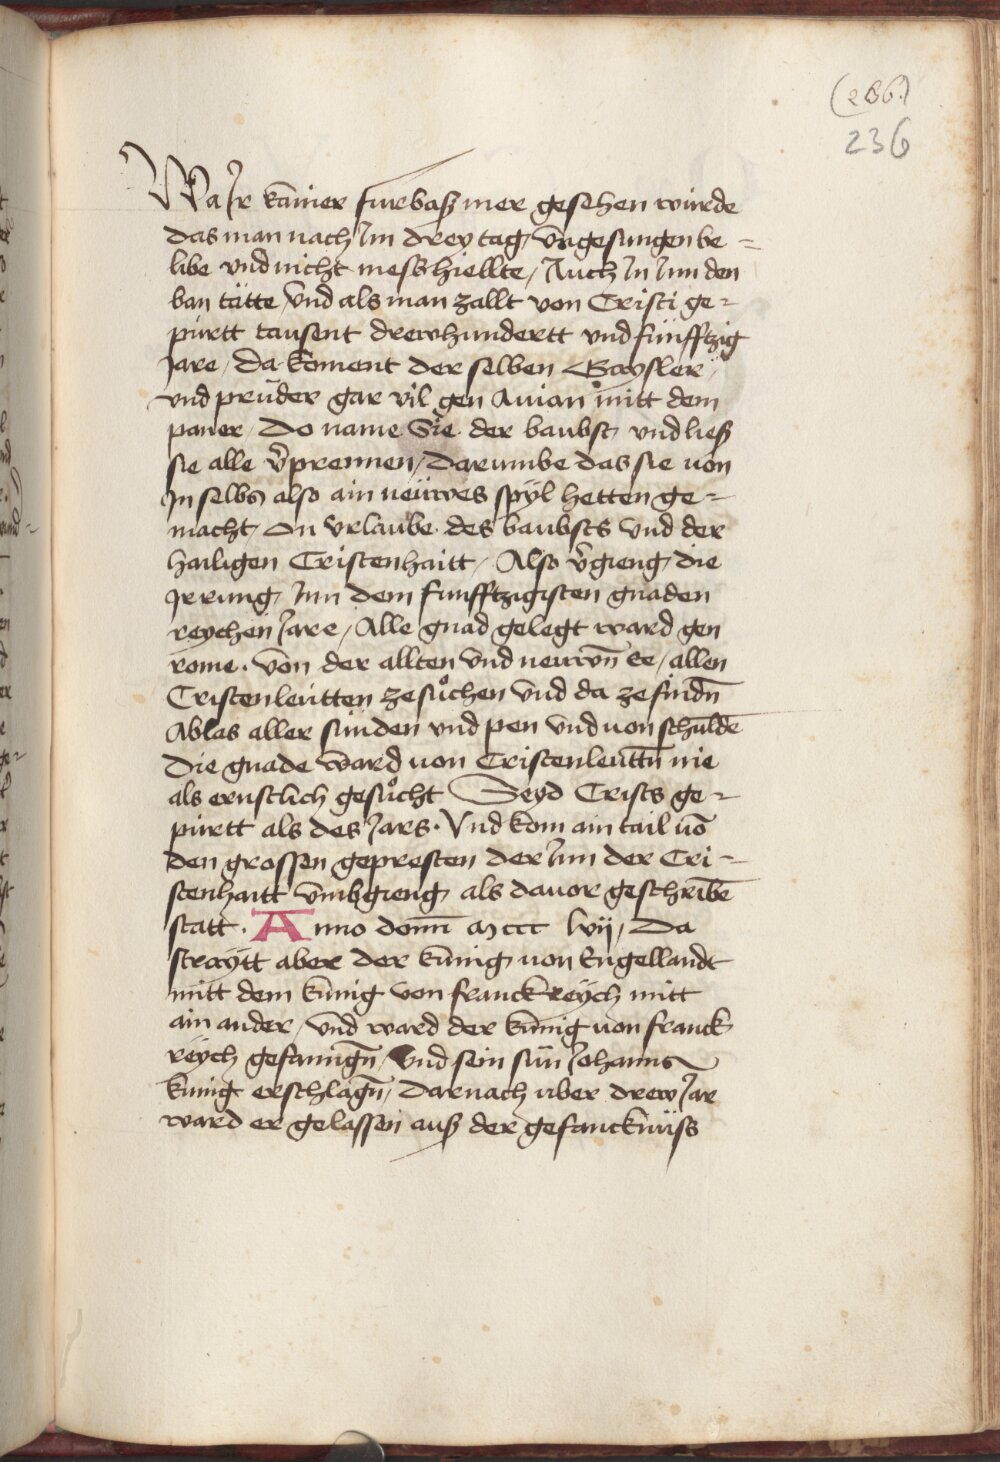 (286.)
236
Wa Jr kainer furbaß mer gesehen wurde
das man nach Jm drey tag, vngesungen be=
libe vnd nicht mess hiellte, Auch Jn Jnn den
ban tätte, vnd als man zallt von Cristi ge=
purtt tausent drewhundertt vnd fünfftzig
Jare, da koment der selben Gaysler,
vnd prüder gar vil gen Auian mitt dem
paner, Do name Sie der baubst vnd ließ
sie alle v̄prennen, darumbe das sie von
Jn selbs also ain neüwes spyl hetten ge=
macht, on vrlaube des baubsts vnd der
hailigen Cristenhaitt, Also v̄gieng, die
Jrrung, Jnn dem funfftzigisten gnaden
reychen Jare, Alle gnad gelegt ward gen
rome. von der allten vnd neuwn̄ ee, allen
Cristenleütten zesůchen vnd da zefindn̄
Ablas aller sünden vnd pen vnd von schuldē
die gnade ward von Cristenleuttn̄ nie
als ernstlich gesůcht Seyd Crists ge=
purtt als des Jars. Vnd kom ain tail vō
den grossen gepresten der Jnn der Cri=
stenhaitt vmbgieng, als dauor geschribē
statt. Anno domī Mccc lvij, Da
straytt aber der künig von Engellandt
mitt dem künig von franckreÿch mitt
ain ander, vnd ward der künig von franck
reÿch gefanngn̄, Vnd sein sun Johanns
künig erschlagn̄, darnach vber drew Jar
ward er gelassen auß der gefancknüss